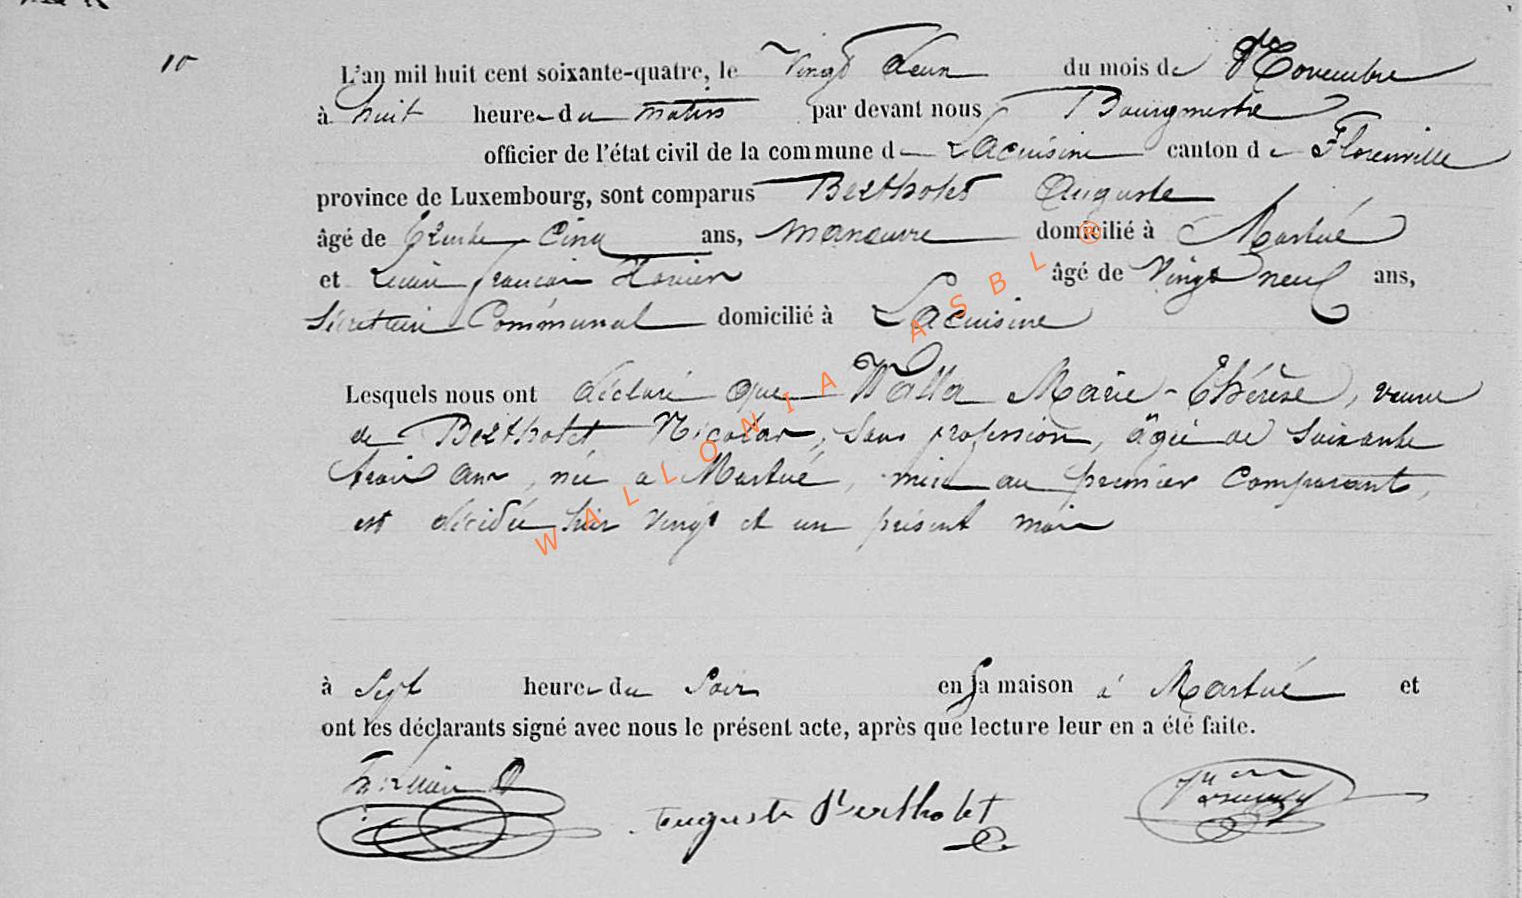 10
L'an mil huit cent soixante-quatre, le Vingt deux du mois de Novembre
à huit heures du matin par devant nous Bourgmestre
officier de l'état civil de la commune de Lacuisine canton de Florenville
province de Luxembourg, sont comparus Bertholet Auguste
âgé de trente cinq ans, manœuvre domicilié à Martué
et François âgé de Vingt neuf ans,
Secrétaire Communal domicilié à Lacuisine
Lesquels nous ont déclaré que Walla Marie-Thérèse, veuve
de Bertholet Nicolas, sans profession, âgée de soixante
trois ans, née à Martué, mère au premier comparant,
est décédée hier vingt et un présent mois
à Sept heures du Soir en sa maison à Martué et
ont les déclarants signé avec nous le présent acte, après que lecture leur en a été faite.
Auguste Bertholet
WALLONIA ASBL ®